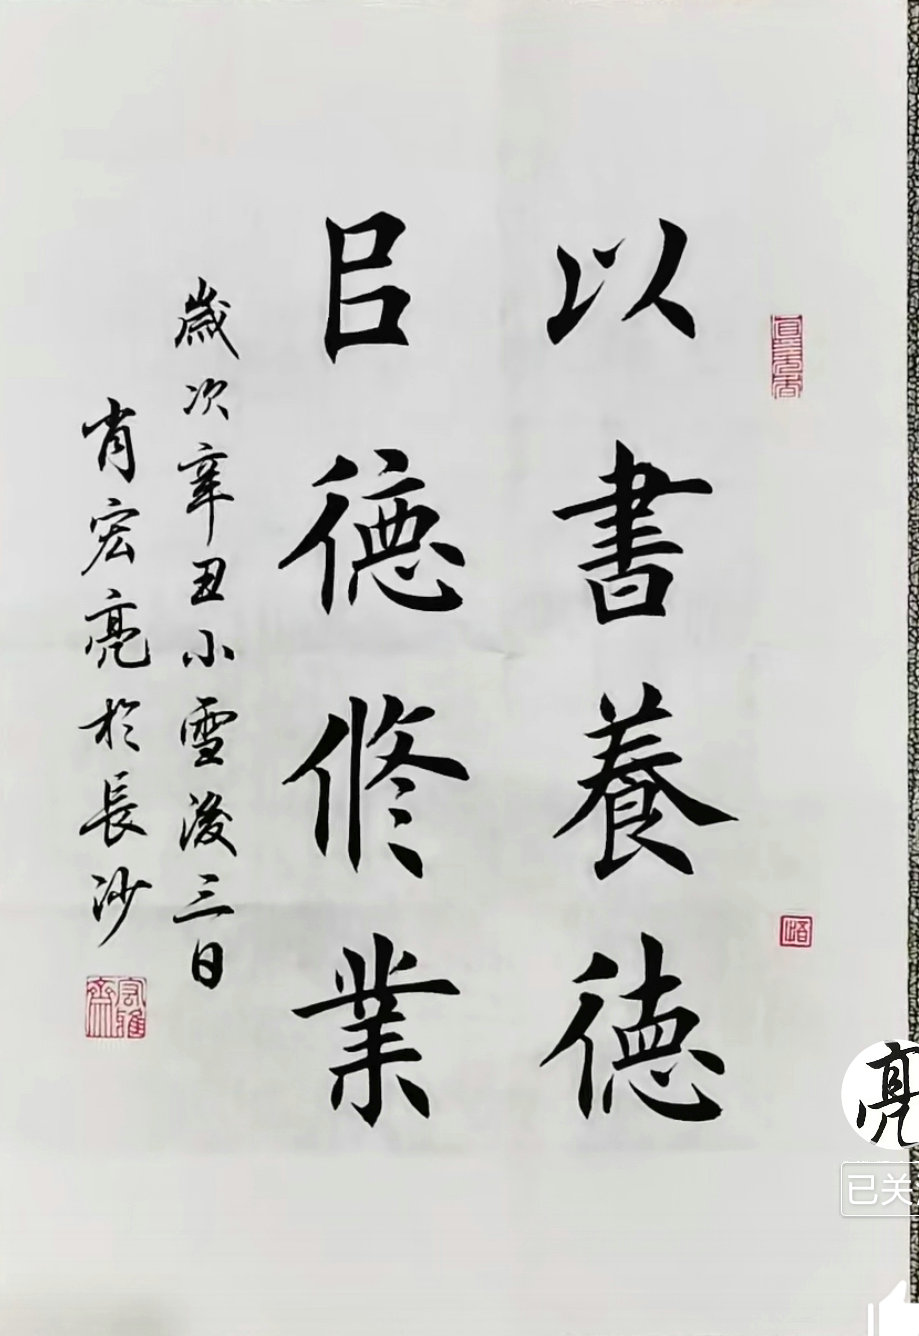 以書養德
㠯德修業
歲次辛丑小雪後三日
肖宏亮於長沙
亮
已关